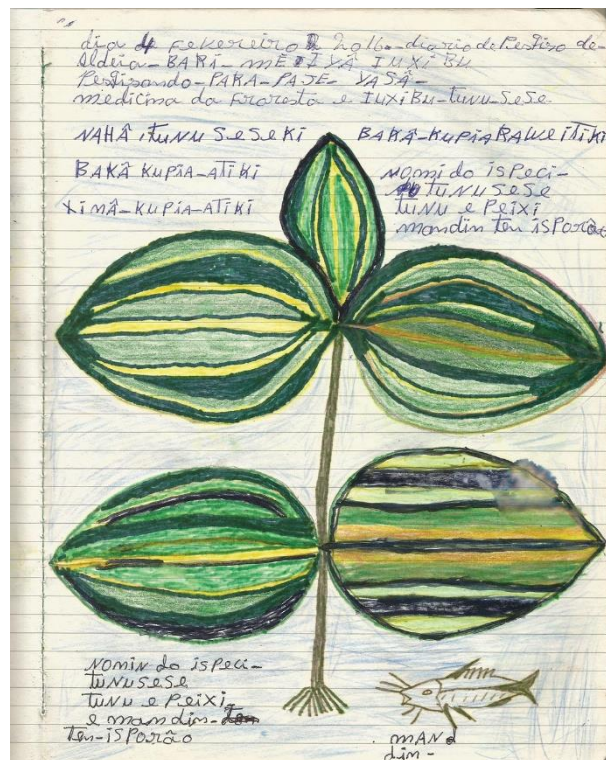 dia 4 Fekereiro 2016-diario de Pestiso de-
Aldeia-BARI-MẼ IUXIBU
Pestisando-PARA-PAJE-YASÂ-
medicina da Froresta e IUXIBU-tunu-SeSe
NAHÂ, tUNU SESEKI BAKÂ-KUPIARAWEITIKI
BAKÂ KUPIA-ATIKI
XIMÂ-KUPIA-ATIKI
nomi do isPeci-
tUNUSESE
tUNU e PeiXi
mandin ten isPorão
NOMiN do isPeci-
tUNUSESE
tUNU e PeiXi
e mandin-
ten-isPorão
MAN
dim-